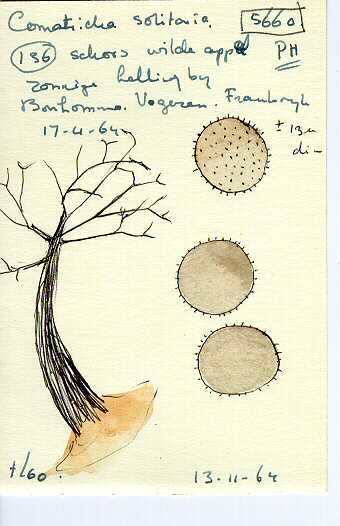 Comatricha solitaria. 5660
136 schors wilde appel PH
zonnige helling by
Bonhomme. Vogezen. Frankryk
17-4-64
± 13 µ
diam
± 1/60.
13-11-64